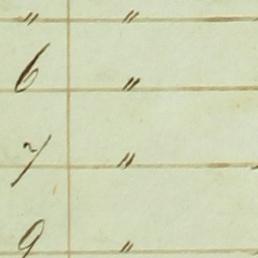 " "
6 "
7 "
9 "